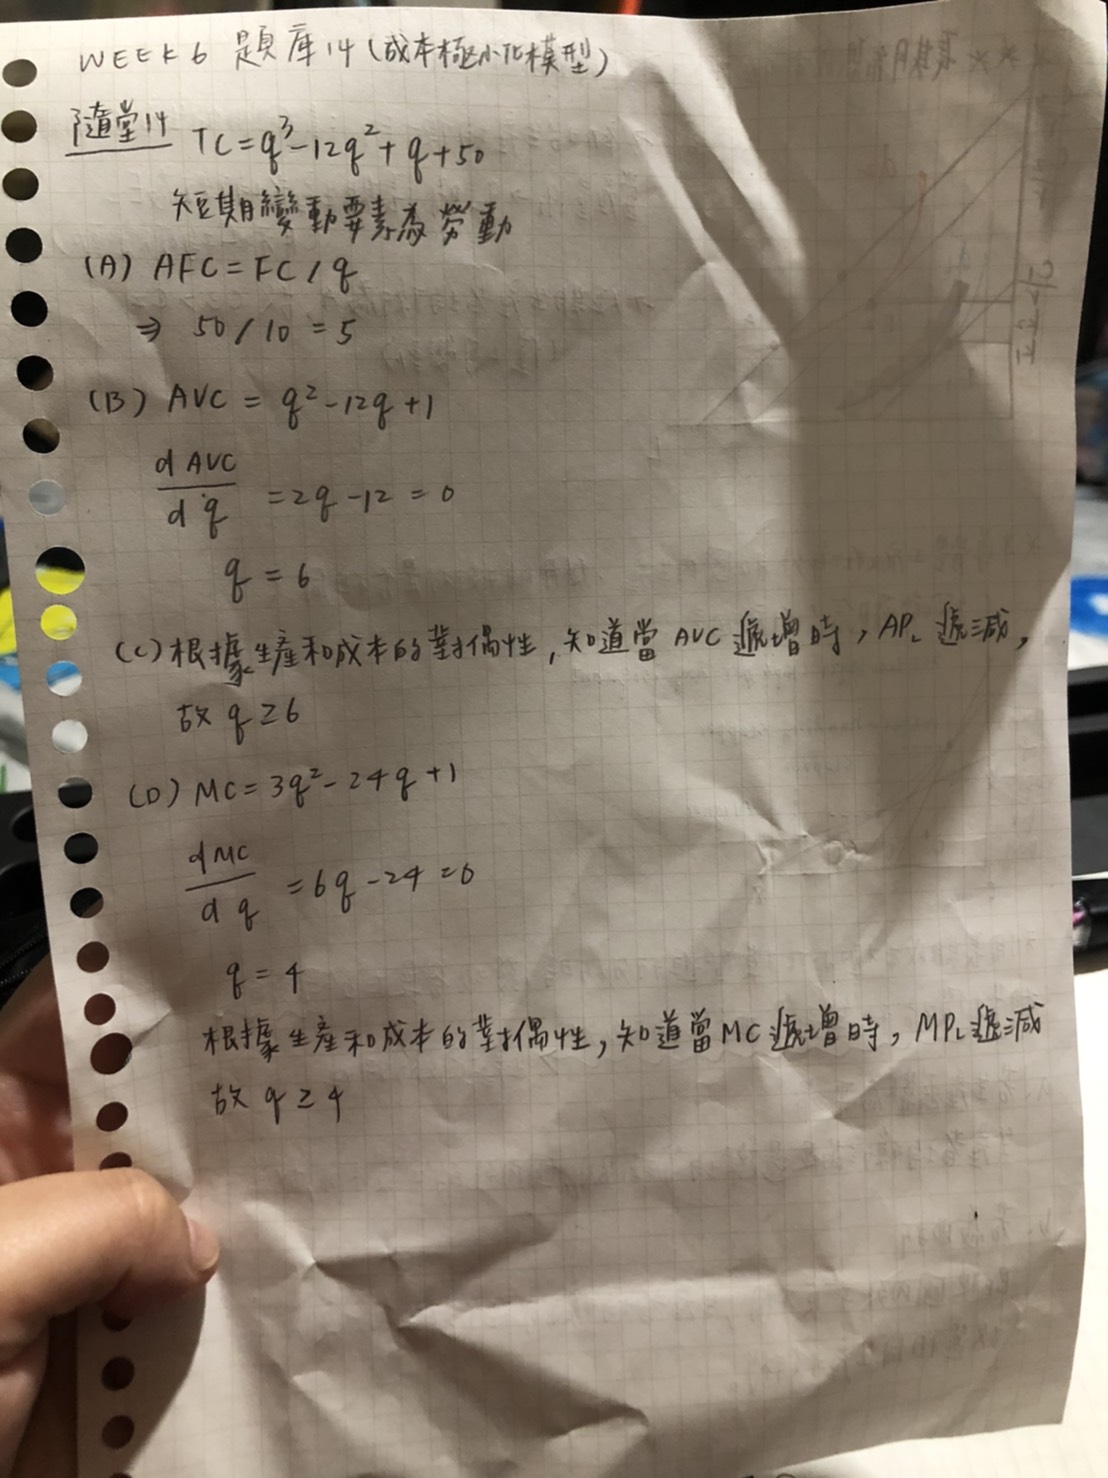 WEEK 6 題庫14 (成本極小化模型)
隨堂14 TC = q³ - 12q² + q + 50
短期變動要素為勞動
(A) AFC = FC / q
⇒ 50 / 10 = 5
(B) AVC = q² - 12q + 1
d AVC
d q = 2q - 12 = 0
q = 6
(C) 根據生產和成本的對偶性, 知道當 AVC 遞增時, AP_L 遞減,
故 q ≥ 6
(D) MC = 3q² - 24q + 1
d MC
d q = 6q - 24 = 0
q = 4
根據生產和成本的對偶性, 知道當 MC 遞增時, MP_L 遞減
故 q ≥ 4